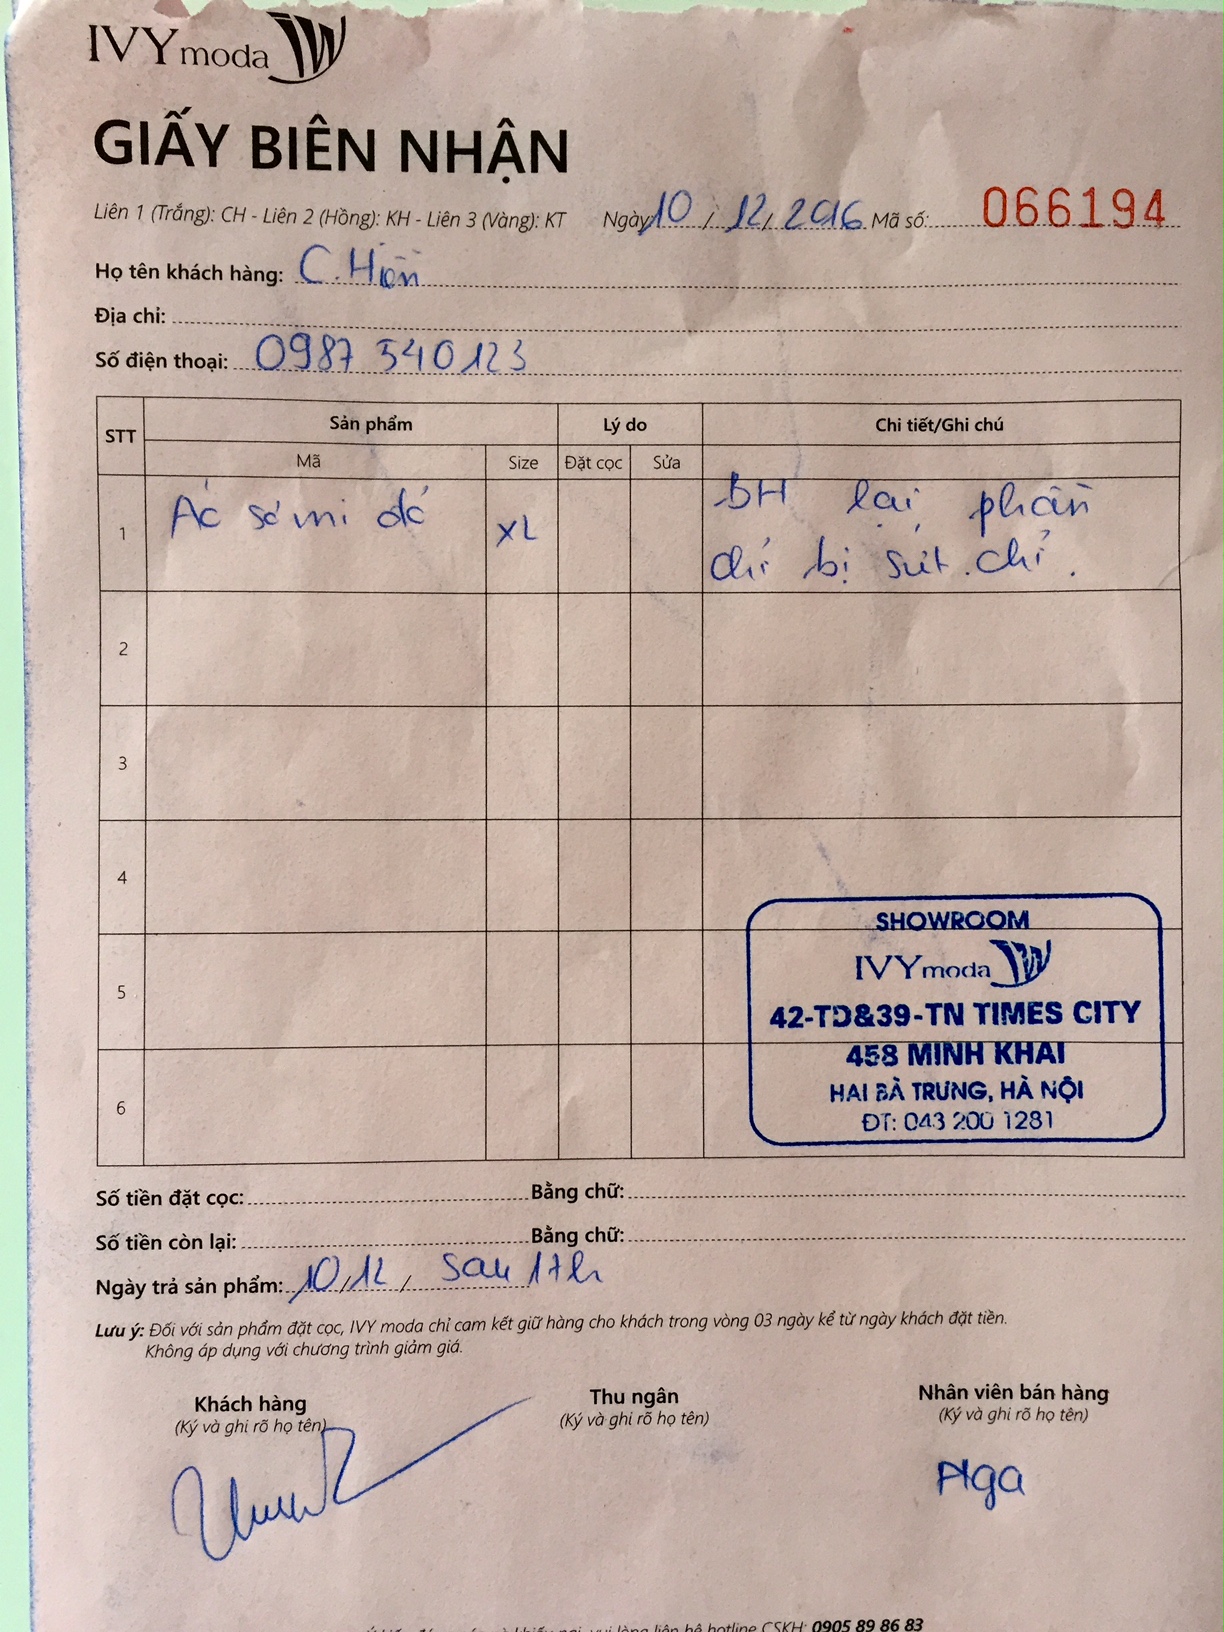 IVY moda
GIẤY BIÊN NHẬN
Liên 1 (Trắng): CH - Liên 2 (Hồng): KH - Liên 3 (Vàng): KT Ngày 10 / 12 / 2016 Mã số: 066194
Họ tên khách hàng: C. Hiền
Địa chỉ:
Số điện thoại: 0987 540123
STT Sản phẩm Lý do Chi tiết/Ghi chú
Mã Size Đặt cọc Sửa
1 Áo sơ mi đỏ XL BH lại phần
chỉ bị sứt chỉ.
2
3
4
SHOWROOM
IVY moda
5
42-TD&39-TN TIMES CITY
458 MINH KHAI
HAI BÀ TRƯNG, HÀ NỘI
6
ĐT: 043 200 1281
Số tiền đặt cọc: Bằng chữ:
Số tiền còn lại: Bằng chữ:
Ngày trả sản phẩm: 10/12/ sau 17h
Lưu ý: Đối với sản phẩm đặt cọc, IVY moda chỉ cam kết giữ hàng cho khách trong vòng 03 ngày kể từ ngày khách đặt tiền.
Không áp dụng với chương trình giảm giá.
Khách hàng Thu ngân Nhân viên bán hàng
(Ký và ghi rõ họ tên) (Ký và ghi rõ họ tên) (Ký và ghi rõ họ tên)
lòng liên hệ hotline CSKH: 0905 89 86 83